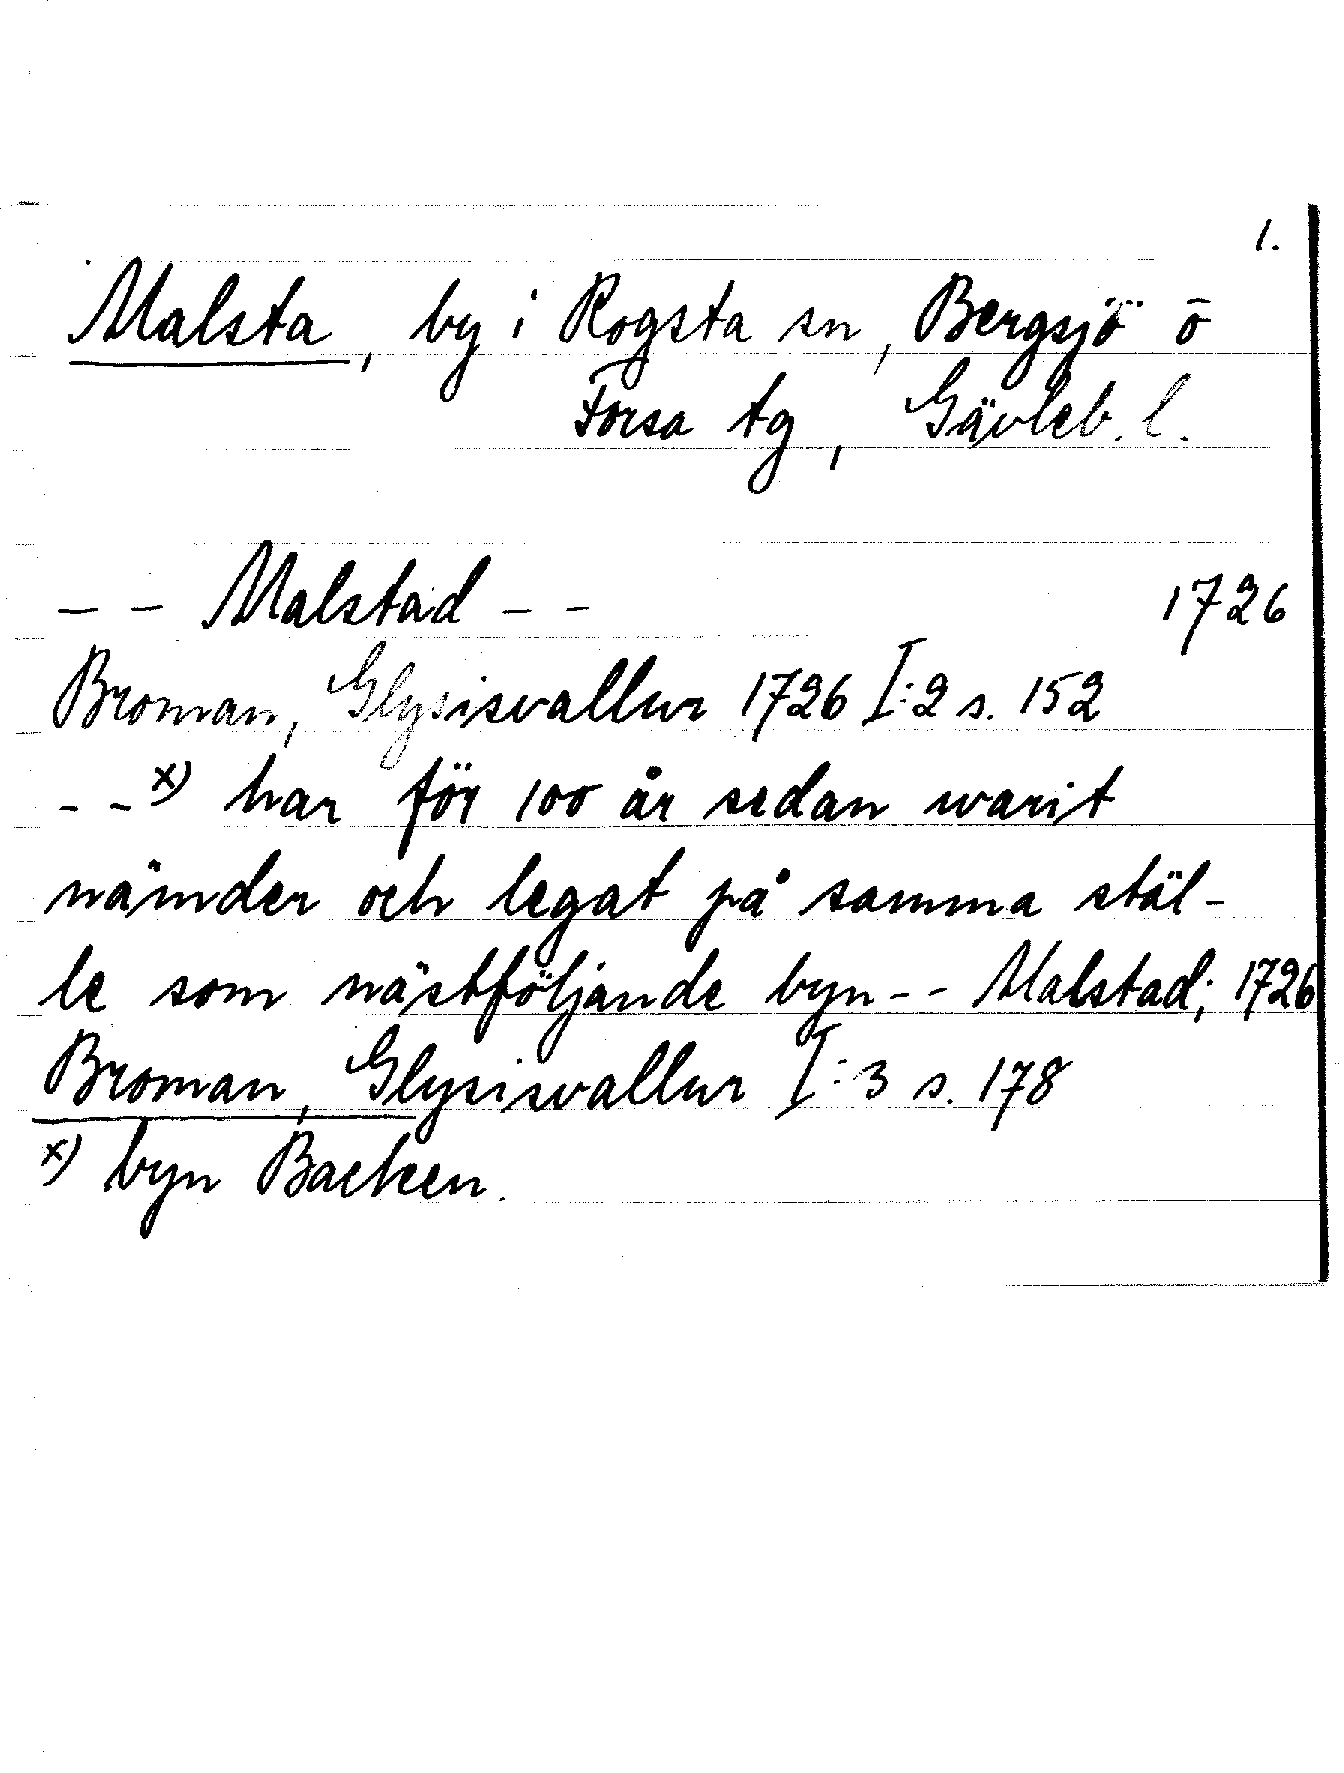 1.
Malsta, by i Rogsta sn, Bergsjö o
Forsa tg, Gävleb. l.
-- Malstad -- 1726
Broman, Glysisvallur 1726 I:2 s. 152
--x) har för 100 år sedan warit
nämder och legat på samma stäl-
le som nästföljande byn -- Malstad; 1726
Broman, Glysisvallur I:3 s. 178
x) byn Backen.